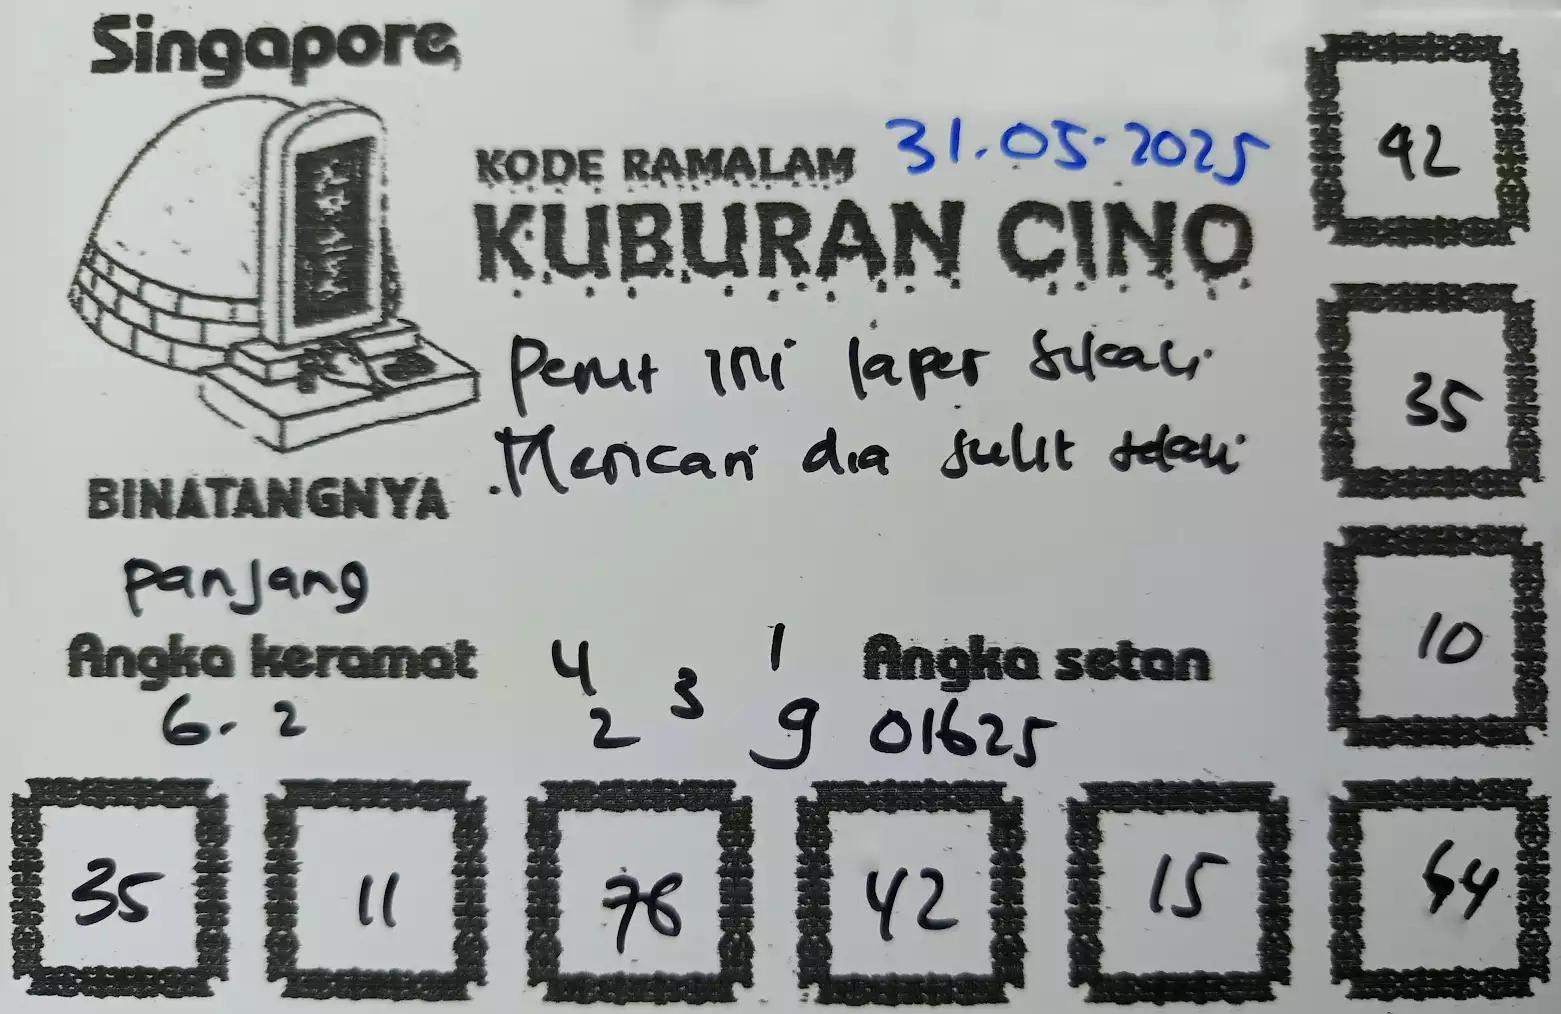 Singapore
KODE RAMALAM 31.05.2025
KUBURAN CINO
Perut ini laper sekali
Mencari dia sulit sekali
BINATANGNYA
Panjang
Angka keramat
6. 2
4 3 1
2 9
Angka setan
01625
42
35
10
35 11 76 42 15 64